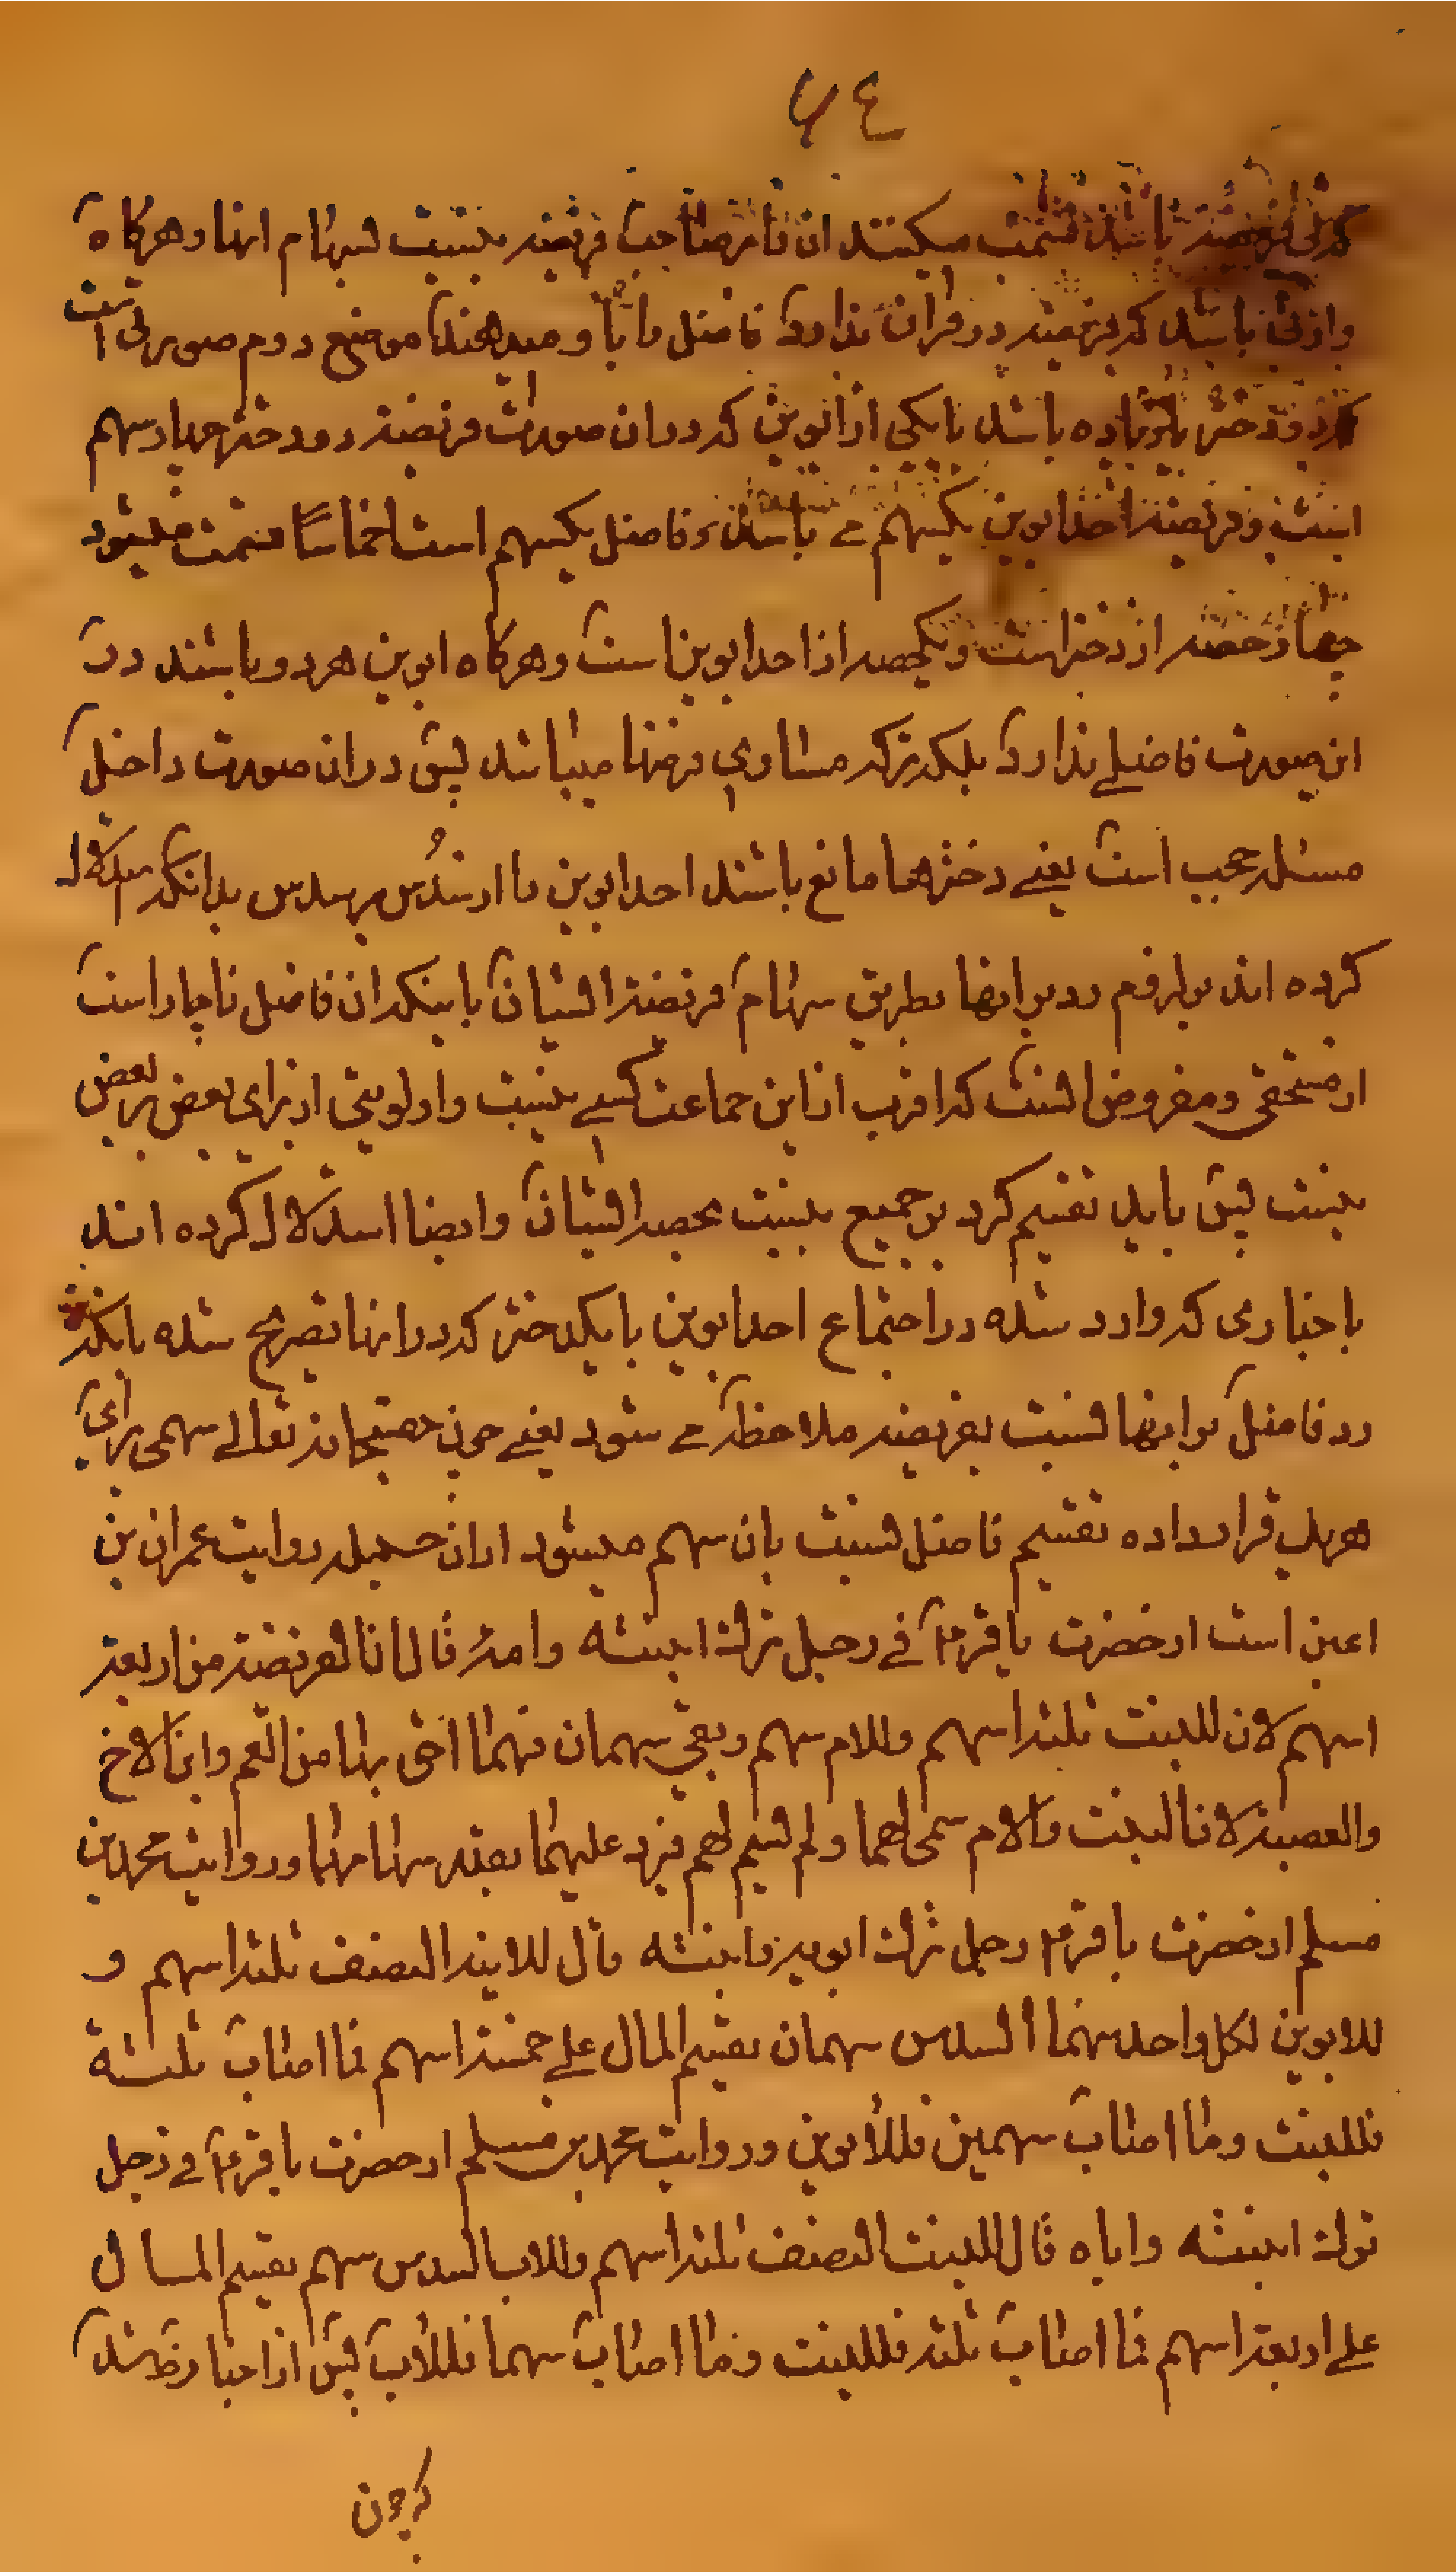 ٦٤
که ذی فریضه باشند قسمت میکنند ان فاضل صاحب فریضه بنسبت سهام انها و هرکاه
وارثی باشد که فریضه در قران ندارد فاضل را باو میدهند موضع دوم صورتی است
که دو دختر یا زیاده باشد با یکی از ابوین که در ان صورت فریضه دو دختر چهار سهم
است و فریضه احد ابوین یکسهم می باشد و فاضل یکسهم است اخماسًا قسمت میشود
چهار حصه از دختر است و یکحصه از احد ابوین است و هرکاه ابوین هر دو باشند در
ان صورت فاضلی ندارد بلکه ترکه مساوی فرضها میباشد پس در ان صورت داخل
مسئله حجب است یعنی دخترها مانع باشند احد ابوین را از سُدس بدانکه استدلال
کرده اند بر رد بر انها بطریق سهام فریضه ایشان باینکه ان فاضل ناچار است
از مستحقی و مفروض انست که اقرب از این جماعت کسی نیست و اولویتی از برای بعض بر بعض
نیست پس باید تقسیم کرد بر جمیع بنسبت حصه ایشان و ایضا استدلال کرده اند
باخباری که وارد شده در اجتماع احد ابوین با یکدختر که در انها تصریح شده بانکه در
رد فاضل بر انها نسبت بفریضه ملاحظه می شود یعنی چون حقسبحانه تعالی سهمی برای
هر یک قرار داده تقسیم فاضل نسبت بان سهم میشود از ان جمله روایت عمران بن
اعین است از حضرت باقر۴ فی رجل ترک ابنته و امه قال ان الفریضة من اربعة
اسهم لان للبنت ثلثة اسهم وللام سهم وبقی سهمان فهما احق بهما من العم وابن الاخ
والعصبة لان البنت والام سمی لهما ولم یسم لهم فیرد علیهما بقدر سهامهما و روایت محمد بن
مسلم از حضرت باقر۴ رجل ترک ابویه وابنته قال للابنة النصف ثلثة اسهم و
للابوین لکل واحد منهما السدس سهمان یقسم المال علی خمسة اسهم فما اصاب ثلثة
فللبنت وما اصاب سهمین فللأبوین و روایت محمد بن مسلم از حضرت باقر۴ فی رجل
ترک ابنته واباه قال للبنت النصف ثلثة اسهم وللاب السدس سهم یقسم المال
علی اربعة اسهم فما اصاب ثلثة فللبنت وما اصاب سهما فللأب پس از اخبار ظ شد
که چون